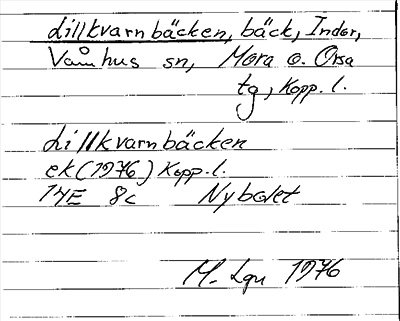 Lillkvarnbäcken, bäck, Indor,
Våmhus sn, Mora o. Orsa
tg, Kopp. l.
Lillkvarnbäcken
ek (1976) Kopp. l.
14E 8c Nybolet
M. Lgn 1976